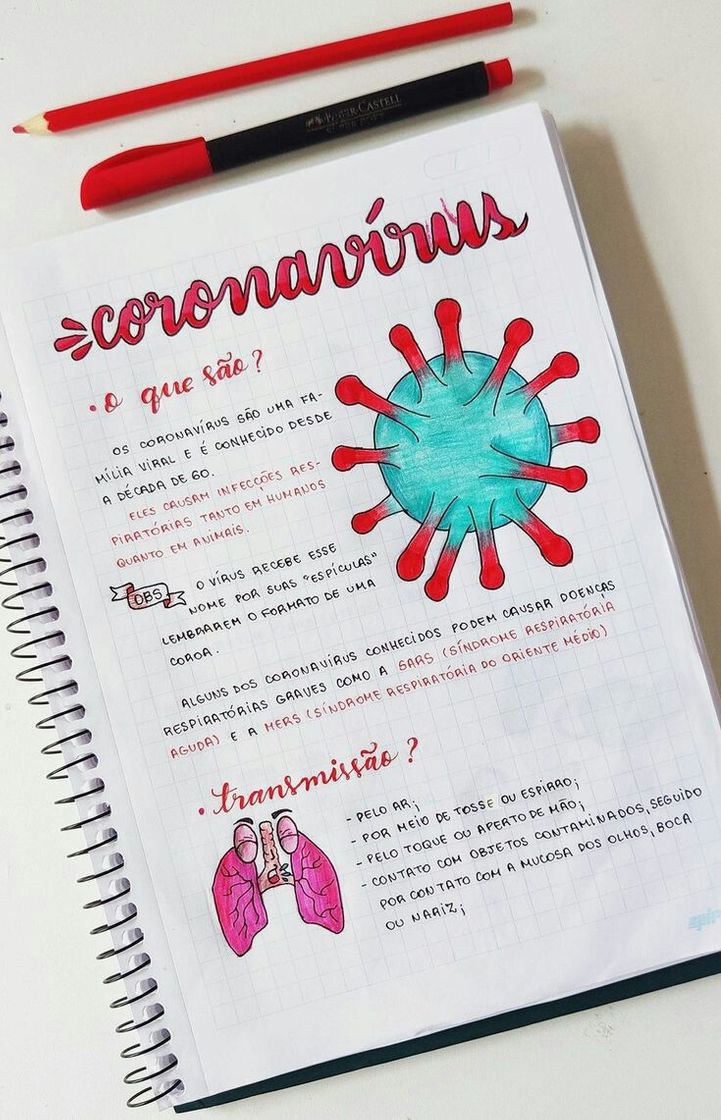 FABER-CASTELL
coronavírus
• o que são?
OS CORONAVÍRUS SÃO UMA FA-
MÍLIA VIRAL E É CONHECIDO DESDE
A DÉCADA DE 60.
ELES CAUSAM INFECÇÕES RES-
PIRATÓRIAS TANTO EM HUMANOS
QUANTO EM ANIMAIS.
OBS
O VÍRUS RECEBE ESSE
NOME POR SUAS "ESPÍCULAS"
LEMBRAREM O FORMATO DE UMA
COROA.
ALGUNS DOS CORONAVÍRUS CONHECIDOS PODEM CAUSAR DOENÇAS
RESPIRATÓRIAS GRAVES COMO A SARS (SÍNDROME RESPIRATÓRIA
AGUDA) E A MERS (SÍNDROME RESPIRATÓRIA DO ORIENTE MÉDIO)
• transmissão?
- PELO AR;
- POR MEIO DE TOSSE OU ESPIRRO;
- PELO TOQUE OU APERTO DE MÃO;
- CONTATO COM OBJETOS CONTAMINADOS, SEGUIDO
POR CONTATO COM A MUCOSA DOS OLHOS, BOCA
OU NARIZ;